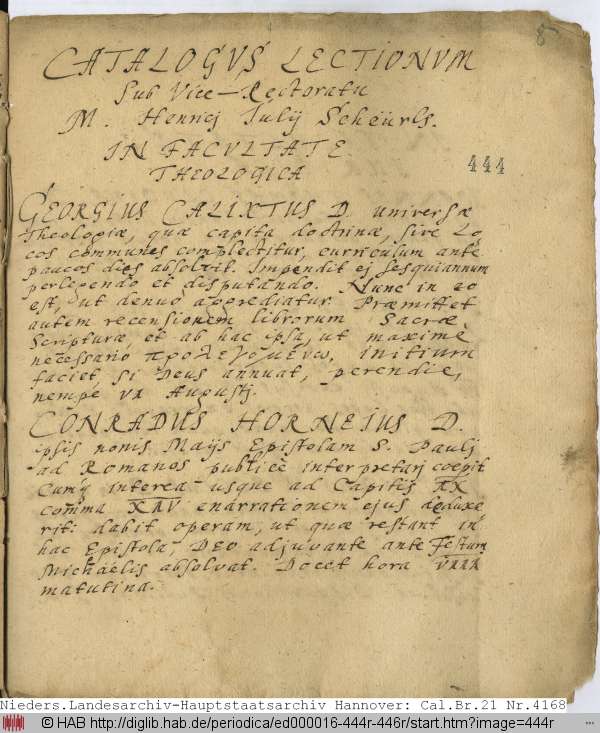 8
CATALOGVS LECTIONVM
Sub Vice-Rectoratu
M. Henrici Julij Scheürls.
IN FACVLTATE
444
THEOLOGICA
GEORGIUS CALIXTUS D. universæ
Theologiæ, quæ capita doctrinæ, sive Lo,
cos communes complectitur, curriculum ante
paucos dies absolvit. Impendit ej sesquiannum
perlegendo et disputando. Nunc in eo
est, ut denuò aggrediatur. Præmittet
autem recensionem librorum Sacræ
Scripturæ, et ab hac ipsa, ut maximè
necessario προλεγομένῳ, initium
faciet, si Deus annuat, perendie,
nempe VII Augustj.
CONRADUS HORNEIUS D.
ipsis nonis Maijs Epistolam S. Paulj
ad Romanos publicè interpretarj coepit
Cumq interea usque ad Capitis IX
comma XIV enarrationem ejus deduxe
rit: dabit operam, ut quæ restant in
hac Epistola, DEO adjuvante ante Festum
Michaëlis absolvat. Docet hora VIII
matutina.
Nieders.Landesarchiv-Hauptstaatsarchiv Hannover: Cal.Br.21 Nr.4168
© HAB http://diglib.hab.de/periodica/ed000016-444r-446r/start.htm?image=444r